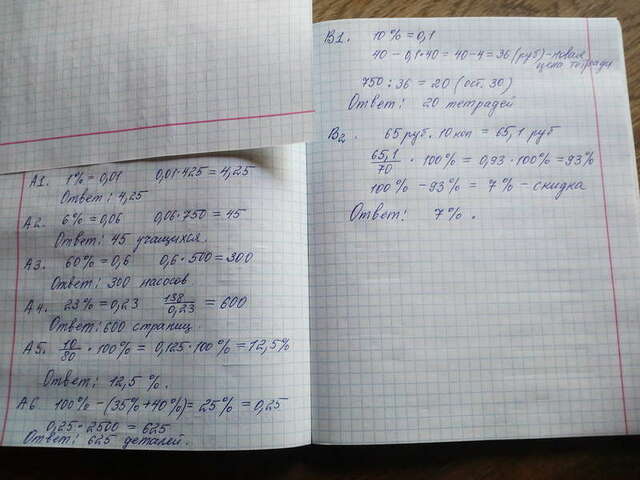 А1. 1% = 0,01 0,01·425 = 4,25
Ответ: 4,25
А2. 6% = 0,06 0,06·750 = 45
Ответ: 45 учащихся.
А3. 60% = 0,6 0,6·500 = 300
Ответ: 300 насосов
А4. 23% = 0,23 138/0,23 = 600
Ответ: 600 страниц.
А5. 10/80 · 100% = 0,125·100% = 12,5%
Ответ: 12,5 %.
А6 100% - (35% + 40%) = 25% = 0,25
0,25·2500 = 625
Ответ: 625 деталей.
В1. 10% = 0,1
40 - 0,1·40 = 40 - 4 = 36 (руб) - новая
цена тетради
750 : 36 = 20 (ост. 30)
Ответ: 20 тетрадей
В2. 65 руб. 10 коп = 65,1 руб
65,1/70 · 100% = 0,93·100% = 93%
100% - 93% = 7% - скидка
Ответ: 7%.